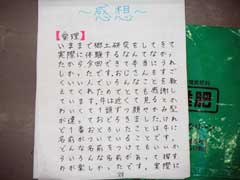 ～感想～
【愛理】
いままで郷土研究をしてきて
実際に体験するなんてなかっ
たから今回できて本当にうれ
しかったです。おじさんもすご
くいい人でいろんなことを教
えてくれたのでとても感謝し
ています。牛は近くで見るとか
わいくて1頭ずつ顔やがら
違っておどろきました
と1番おどろいたことは牛に
名前がついていることです。
どんな名前をつけてもいい
いろいろな名前があって探す
のが楽しかったです。実際に